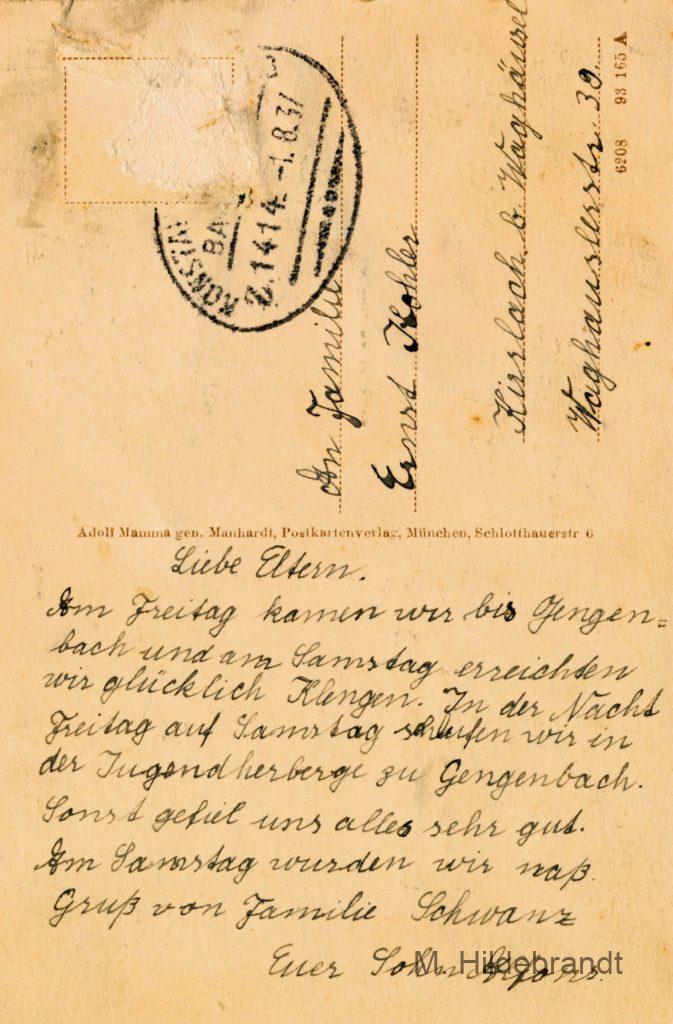 KONSTAN
BA
Z.1414 -1.8.37
An Familie
Ernst Kohler
Kirrlach b. Waghäusel
Waghäuslerstr 39.
6208 93 165 A
Adolf Mamma gen. Manhardt, Postkartenverlag, München, Schlotthauerstr 6
Liebe Eltern.
Am Freitag kamen wir bis Gengen=
bach und am Samstag erreichten
wir glücklich Klengen. In der Nacht
Freitag auf Samstag schlufen wir in
der Jugendherberge zu Gengenbach.
Sonst gefiel uns alles sehr gut.
Am Samstag wurden wir naß.
Gruß von Familie Schwanz
Euer Sohn Alfons.
M. Hildebrandt